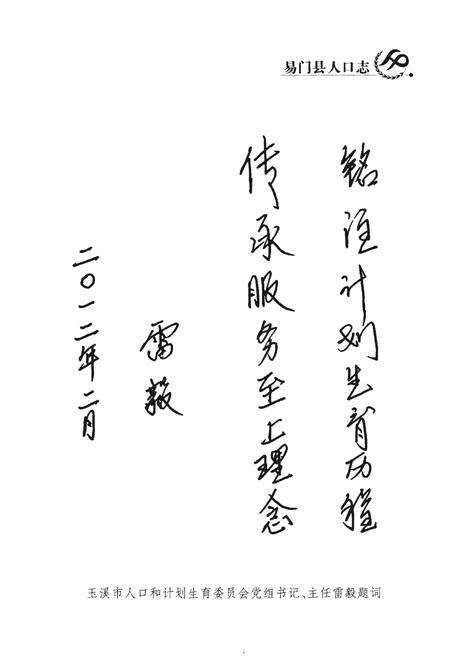 易门县人口志
铭注计划生育历程
传承服务至上理念
雷毅
二〇一二年二月
玉溪市人口和计划生育委员会党组书记、主任雷毅题词